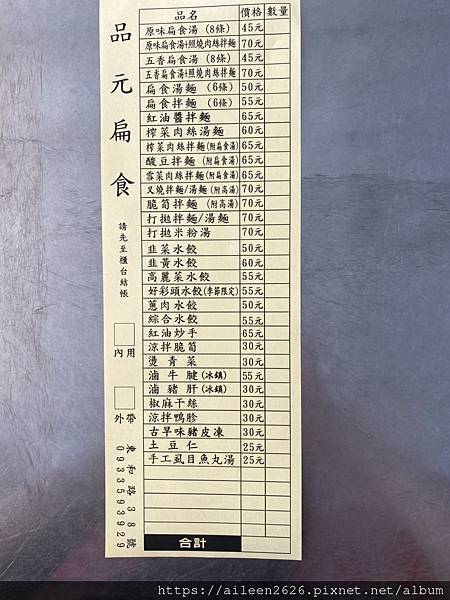 品元扁食
請先至櫃台結帳
內用
外帶
東和路38號
0933593929
品名 價格 數量
原味扁食湯 (8條) 45元
原味扁食湯+照燒肉絲拌麵 70元
五香扁食湯 (8條) 45元
五香扁食湯+照燒肉絲拌麵 70元
扁食湯麵 (6條) 50元
扁食拌麵 (6條) 55元
紅油醬拌麵 65元
榨菜肉絲湯麵 60元
榨菜肉絲拌麵(附扁食湯) 65元
酸豆拌麵 (附扁食湯) 65元
雪菜肉絲拌麵(附扁食湯) 65元
叉燒拌麵/湯麵(附高湯) 70元
脆筍拌麵 (附高湯) 70元
打拋拌麵/湯麵 70元
打拋米粉湯 70元
韭菜水餃 50元
韭黃水餃 60元
高麗菜水餃 55元
好彩頭水餃(季節限定) 55元
蔥肉水餃 50元
綜合水餃 55元
紅油炒手 65元
涼拌脆筍 30元
燙青菜 30元
滷牛腱(冰鎮) 55元
滷豬肝(冰鎮) 30元
椒麻干絲 30元
涼拌鴨胗 30元
古早味豬皮凍 30元
土豆仁 25元
手工虱目魚丸湯 25元
合計
https://aileen2626.pixnet.net/album